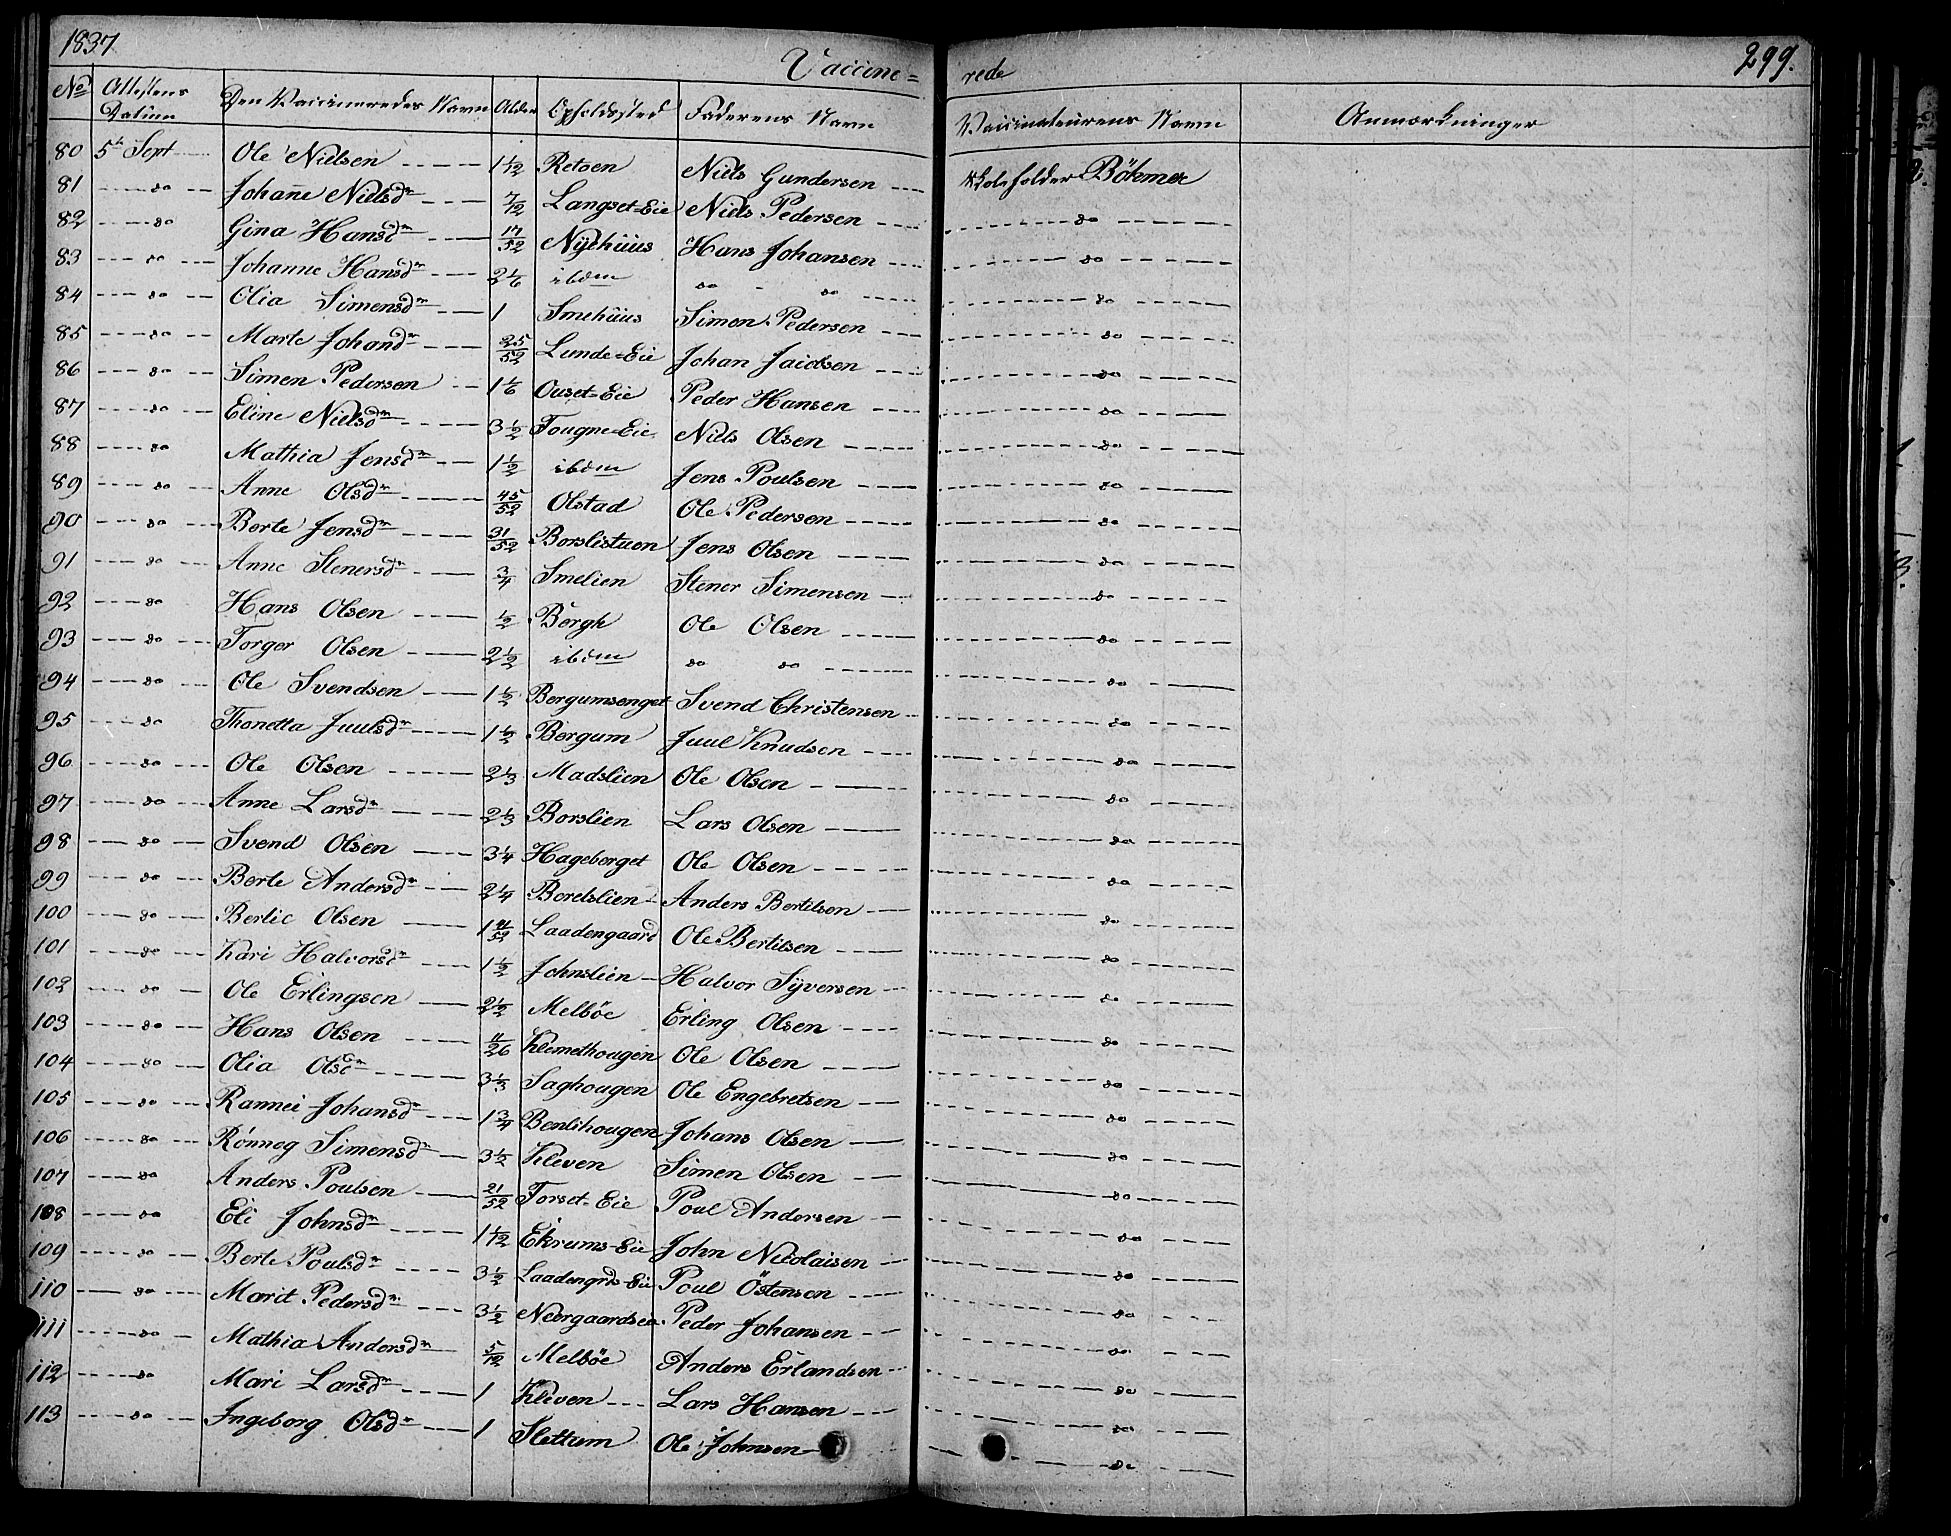 1837 Vaccine= rede 299.
No Attestens Datum Den Vaccineredes Navn Alder Opholdssted Faderens Navn Vaccinateurens Navn Anmærkninger
80 5te Sept Ole Nielsen 1 1/12 Retoen Niels Gundersen Skoleholder Böhmer
81 do Johanne Nielsdr 7/12 Langset=Eie Niels Pedersen do
82 do Gina Hansdr 17/52 Nyehuus Hans Johansen do
83 do Johanne Hansdr 2 1/6 ibdm do do do
84 do Olia Simensdr 1 Smehuus Simen Pedersen do
85 do Marte Johansdr 25/52 Lunde=Eie Johan Jacobsen do
86 do Simen Pedersen 1 1/6 Ouset=Eie Peder Hansen do
87 do Eline Nielsdr 3 1/2 Fougne=Eie Niels Olsen do
88 do Mathia Jensdr 1 1/2 ibdm Jens Poulsen do
89 do Anne Olsdr 45/52 Olstad Ole Pedersen do
90 do Berte Jensdr 31/52 Borslistuen Jens Olsen do
91 do Anne Stenersdr 3/4 Smelien Stener Simensen do
92 do Hans Olsen 1/2 Bergh Ole Olsen do
93 do Torger Olsen 2 1/2 ibdm do do do
94 do Ole Svendsen 1 1/2 Bergumsenget Svend Christensen do
95 do Thonetta Juulsdr 1 1/2 Bergum Juul Knudsen do
96 do Ole Olsen 2 1/3 Madslien Ole Olsen do
97 do Anne Larsdr 2 1/3 Borslien Lars Olsen do
98 do Svend Olsen 3 1/4 Hageberget Ole Olsen do
99 do Berte Andersdr 2 1/4 Boretslien Anders Bertelsen do
100 do Bertie Olsen 1 41/52 Laadengaard Ole Bertilsen do
101 do Kari Halvorsdr 1 1/2 Johnslien Halvor Syversen do
102 do Ole Erlingsen 2 1/2 Melböe Erling Olsen do
103 do Hans Olsen 11/26 Klemethougen Ole Olsen do
104 do Olia Olsdr 3 1/3 Saghougen Ole Engebretsen do
105 do Rannei Johansdr 1 3/4 Bentihougen Johans Olsen do
106 do Rönnog Simensdr 3 1/2 Kleven Simen Olsen do
107 do Anders Poulsen 21/52 Torset=Eie Poul Andersen do
108 do Eli Johnsdr 1 1/12 Ekrums=Eie John Nicolaisen do
109 do Berte Poulsdr 3 1/2 Laadengrds=Eie Poul Östenson do
110 do Marit Pedersdr 3 1/2 Neergaardseie Peder Johansen do
111 do Mathia Andersdr 5/12 Melböe Anders Erlandsen do
112 do Mari Larsdr 1 Kleven Lars Hansen do
113 do Ingeborg Olsdr 1 Slettum Ole Johnsen do